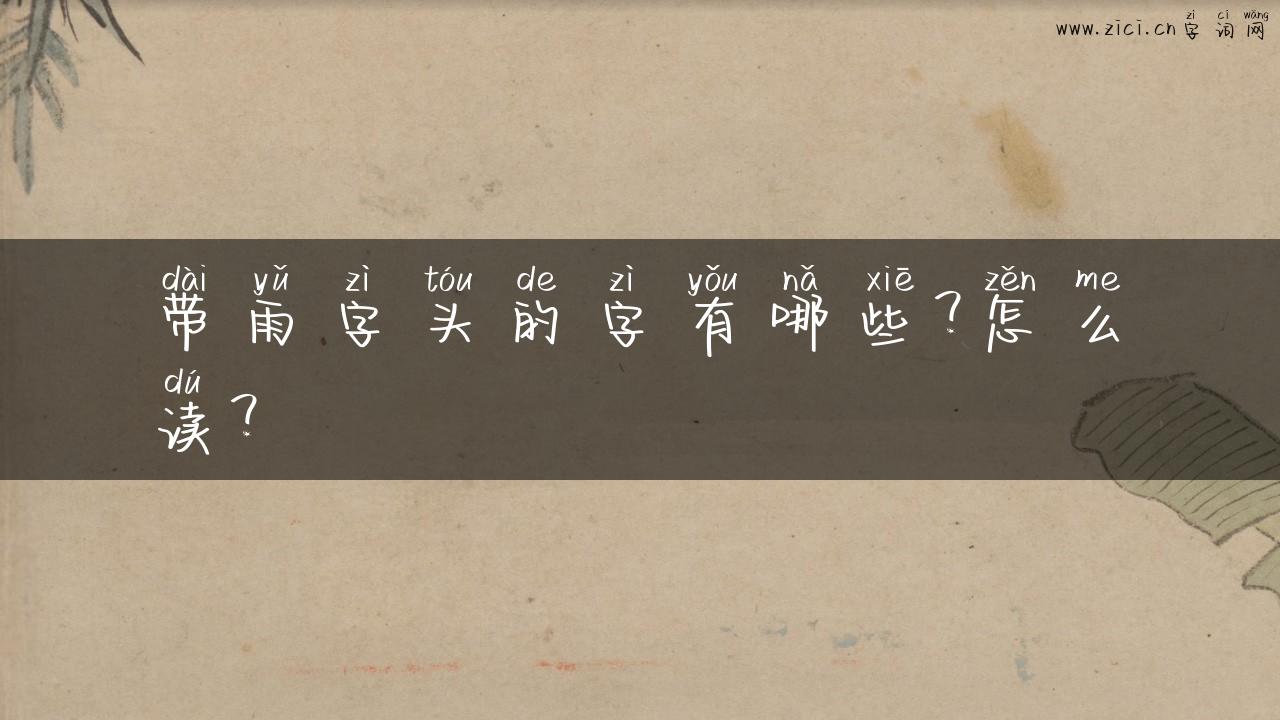 zì cí wǎng
www.zici.cn 字词网
dài yǔ zì tóu de zì yǒu nǎ xiē zěn me
带雨字头的字有哪些？怎么
dú
读？